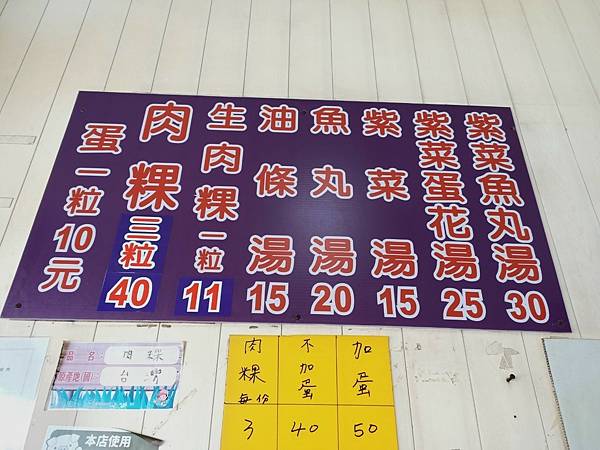 蛋一粒10元
肉粿三粒40
生肉粿一粒11
油條湯15
魚丸湯20
紫菜湯15
紫菜蛋花湯25
紫菜魚丸湯30
品名：肉粿
原產地(國)：台灣
本店使用
肉粿每份 不加蛋 加蛋
3 40 50